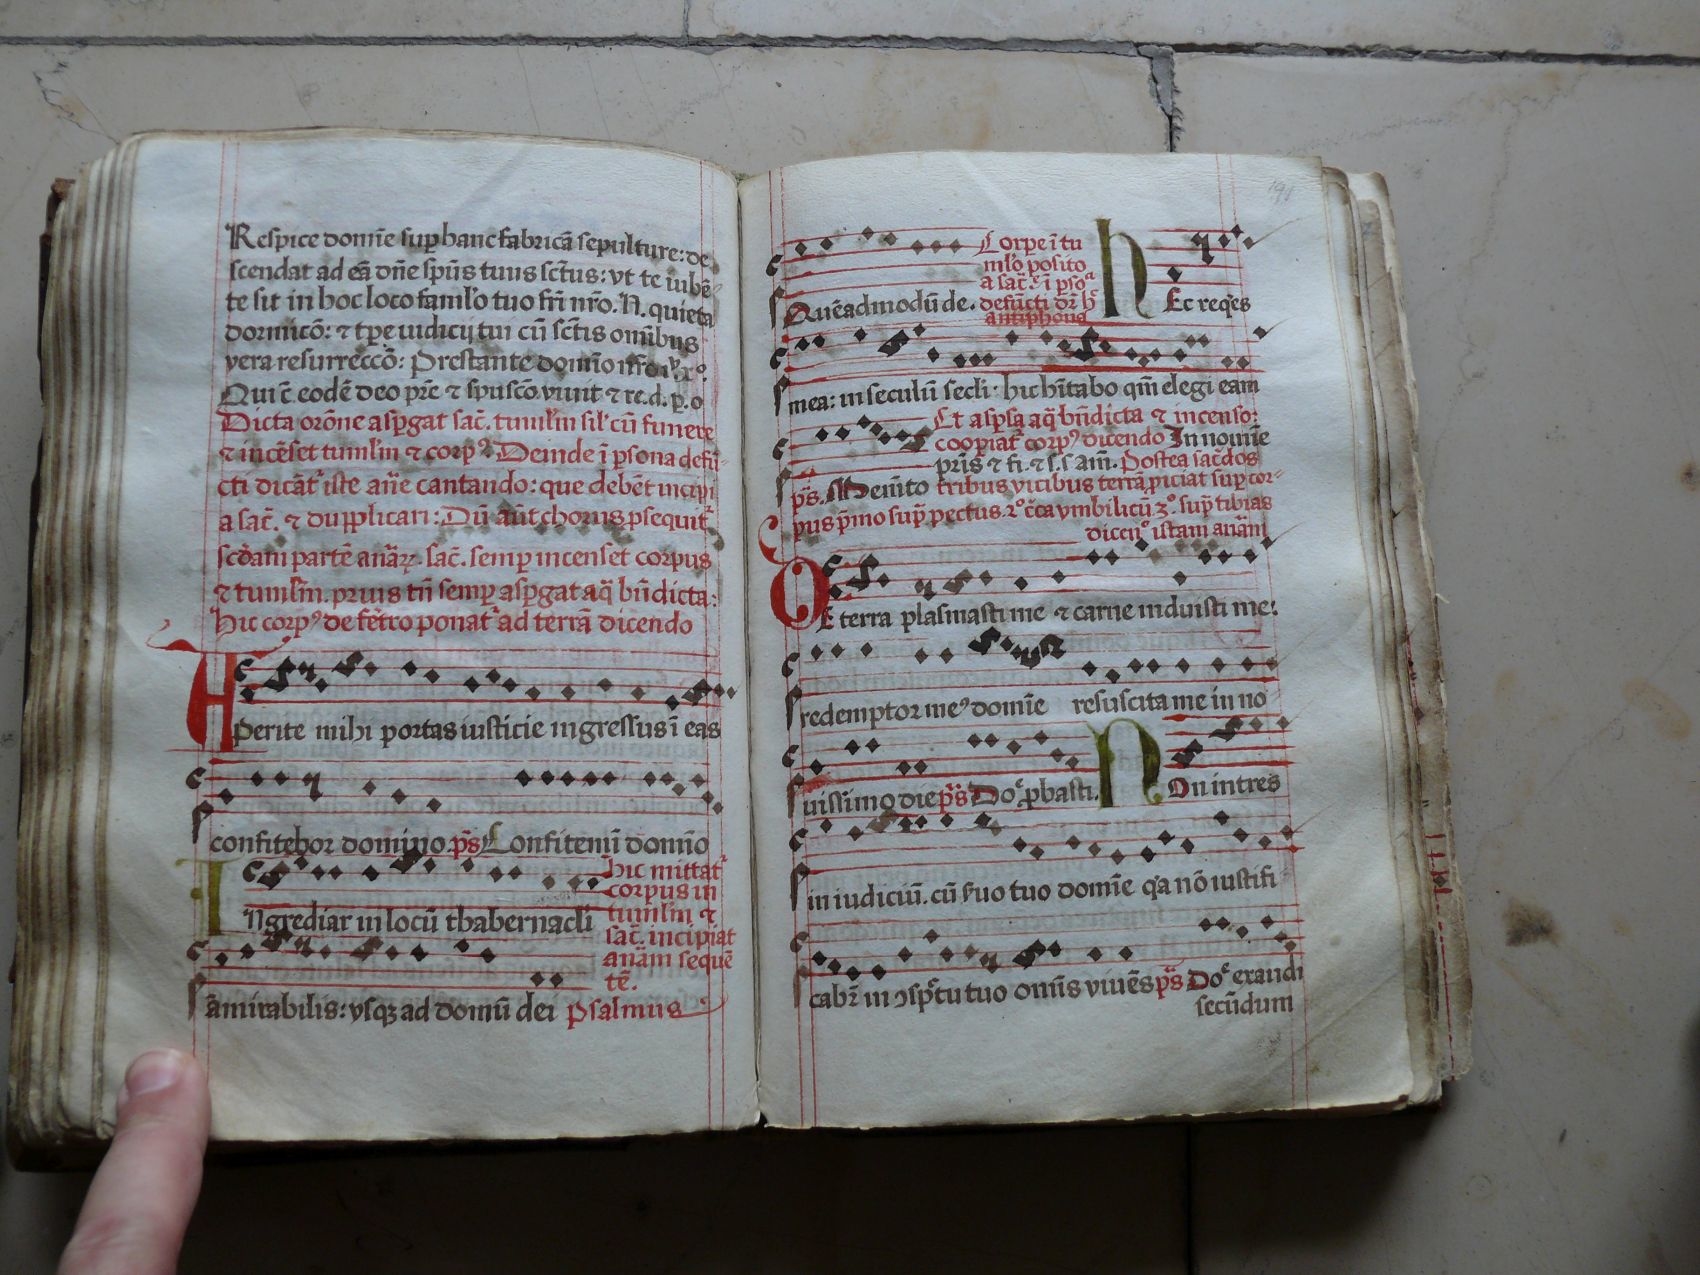 Respice domīe sup hanc fabricā sepulture: de
scendat ad eā dn̄e spūs tuus sctūs: vt te iubē
te sit in hoc loco famlo tuo fri nr̄o. N. quieta
dormicō: ⁊ tpe iudicij tui cū sctīs omībus
vera resurreccō: Prestante domīo nr̄o
Qui ē eodē deo pr̄e ⁊ spuscō viuit ⁊ re.d.p.o
Dicta orōne aspgat sac̄. tumlm sil' cū funere
⁊ incēset tumlm ⁊ corpꝰ. Deinde ī psona defū
cti dicāt iste an̄e cantando: que debēt incipi
a sac̄. ⁊ dupplicari: Dū aut chorus psequit
scdam partē anaꝝ. sac̄. semp incenset corpus
⁊ tumlm. prius tn̄ semp aspgat aq̄ bn̄dicta:
hic corpꝰ de fetro ponat ad terrā dicendo
APerite mihi portas iusticie ingressus ī eas
confitebor domino ps̄ Confitemī domīo
INgrediar in locū thabernacli
hic mittat
corpus in
tumlm ⁊
sac̄. incipiat
anam sequē
tē.
āmirabilis: vsqꝫ ad domū dei Psalmus
191
Quēadmodū de.
Corpe ī tu
mlo posito
a sac̄. ī pso
defūcti dr̄ h
antiphona
hEc reqes
mea: in seculū secli: hic hītabo qm̄ elegi eam
ps̄. Memīto
Et aspsa aq̄ bn̄dicta ⁊ incenso:
coopiat corpꝰ dicendo In nomīe
pris ⁊ fi. ⁊ s.s am̄. Postea sacdos
tribus vicibus terrā piciat sup cor-
pus pmo sup pectus. 2º cca vmbilicū. 3º. sup tibias
dicen istam anam
DE terra plasmasti me ⁊ carne induisti me:
redemptor meꝰ domīe resuscita me in no
uissimo die ps̄ Doe pbasti.
NOn intres
in iudiciū. cū suo tuo domīe qa nō iustifi
cabr̄ in ɔspctu tuo omīs viuēs ps̄ Doe exaudi
secūdum